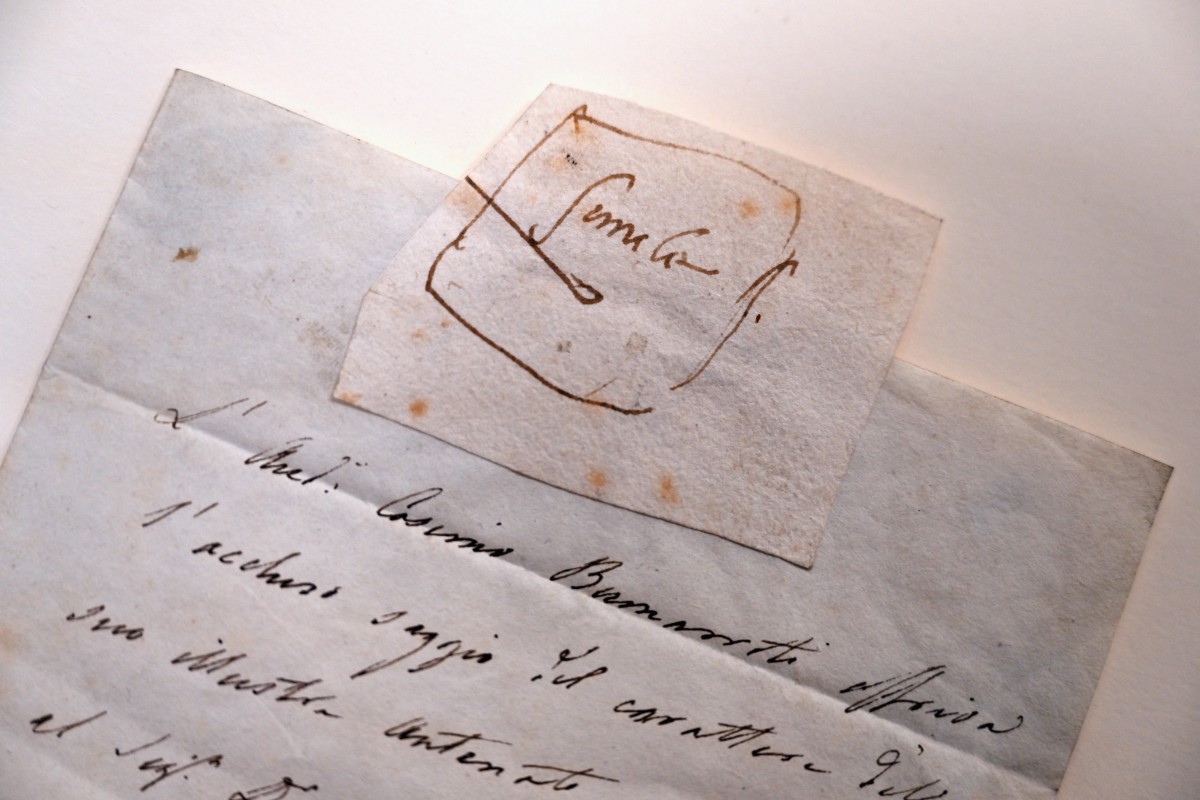 simile
L' Aud.: Cosimo Buonarroti offriva
l' accluso saggio del carattere dell
suo illustre antenato
al Sigr. D